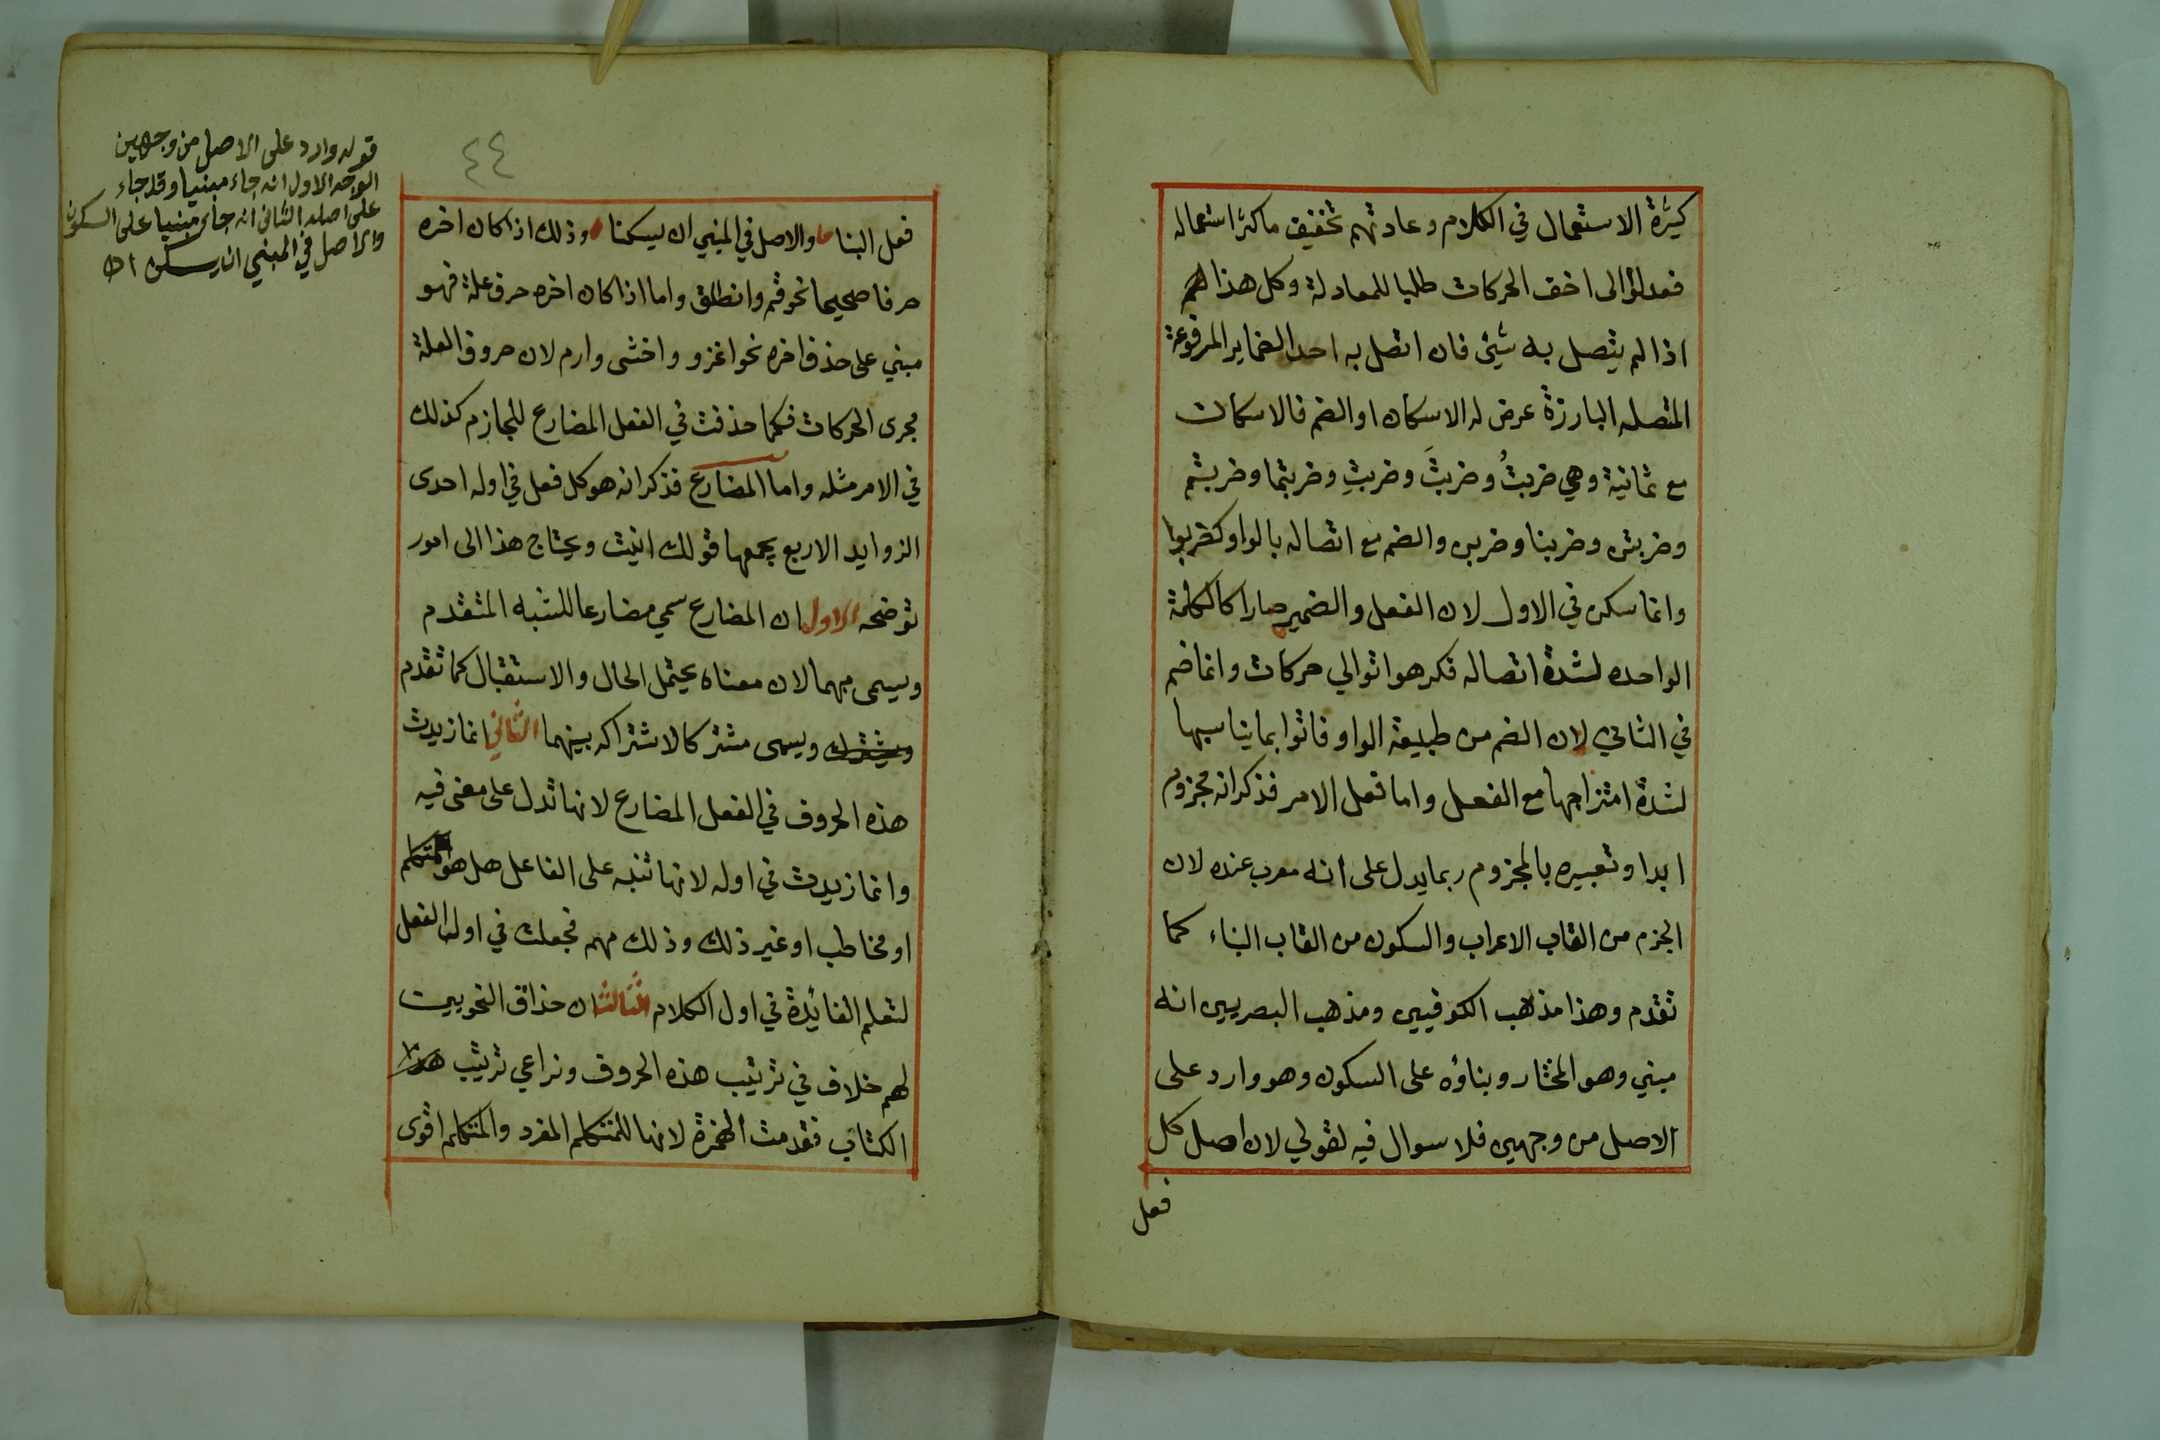 كثيرة الاستعمال في الكلام وعادتهم تخفيف ماكثر استعماله
فعدلوا الى اخف الحركات طلبا للمعادلة وكل هذا لهم
اذا لم يتصل به شئ فان اتصل به احد الضماير المرفوعة
المتصله البارزة عرض له الاسكان او الضم فالاسكان
مع ثمانية وهي ضربتُ وضربتَ وضربتِ وضربتما وضربتم
وضربتن وضربنا وضربن والضم مع اتصاله بالواو كضربوا
وانما سكن في الاول لان الفعل والضمير صارا كالكلمة
الواحده لشدة اتصاله فكرهوا توالي حركات وانما ضم
في الثاني لان الضم من طبيعة الواو فاتوا بما يناسبها
لشدة امتزاجها مع الفعل واما فعل الامر فذكر انه مجزوم
ابدا وتعبيره بالمجزوم ربما يدل على انه معرب عنده لان
الجزم من القاب الاعراب والسكون من القاب البناء كما
تقدم وهذا مذهب الكوفيين ومذهب البصريين انه
مبني وهو المختار وبناؤه على السكون وهو وارد على
الاصل من وجهين فلا سوال فيه لقولي لان اصل كل
فعل
٤٤
فعل البناء والاصل في المبني ان يسكنا وذلك اذا كان اخره
حرفا صحيحا نحو قم وانطلق واما اذا كان اخره حرف علة فهو
مبني على حذف اخره نحو اغزو واخشى وارم لان حروف العلة
مجرى الحركات فكما حذفت في الفعل المضارع للجازم كذلك
في الامر مثله واما المضارع فذكر انه هو كل فعل في اوله احدى
الزوايد الاربع يجمعها قولك انيت ويحتاج هذا الى امور
توضحه الاول ان المضارع سمي مضارعا للشبه المتقدم
ويسمى مبهما لان معناه يحتمل الحال والاستقبال كما تقدم
ويسمى مشتركا لاشتراكه بينهما الثاني انما زيدت
هذه الحروف في الفعل المضارع لانها تدل على معنى فيه
وانما زيدت في اوله لانها تنبه على الفاعل هل هو متكلم
او مخاطب او غير ذلك وذلك مهم فجعلت في اول الفعل
لتعلم الفائدة في اول الكلام الثالث ان حذاق النحويين
لهم خلاف في ترتيب هذه الحروف ونراعي ترتيب هذا
الكتاب فقدمت الهمزة لانها للمتكلم المفرد والمتكلم اقوى
قوله وارد على الاصل من وجهين
الوجه الاول انه جاء مبنيا وقد جاء
على اصله الثاني انه جاء مبنيا على السكون
والاصل في المبني ان يسكن اه